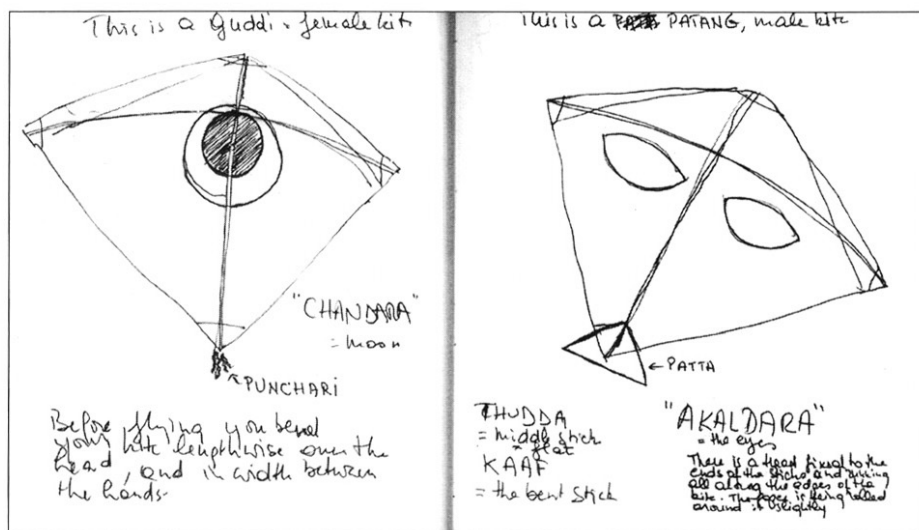 This is a Guddi = female kite
"CHANDARA"
= moon
PUNCHARI
Before flying you bend
your kite lengthwise over the
head, and in width between
the hands.
This is a PATANG, male kite
PATTA
THUDDA
= middle stick
= flat
KAAF
= the bent stick
"AKALDARA"
= the eyes
There is a thread fixed to the
ends of the sticks and running
all along the edges of the
kite. The paper is being rolled
around it slightly